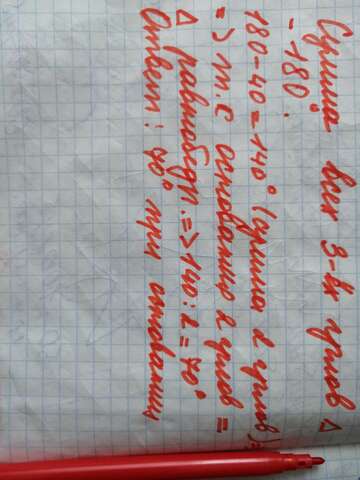 Сумма всех 3-ёх углов Δ
- 180°.
180-40=140° (сумма 2 углов).
=> т.с основания 2 углов =
Δ равнобедр.=>140:2=70°
Ответ: 70° при основании